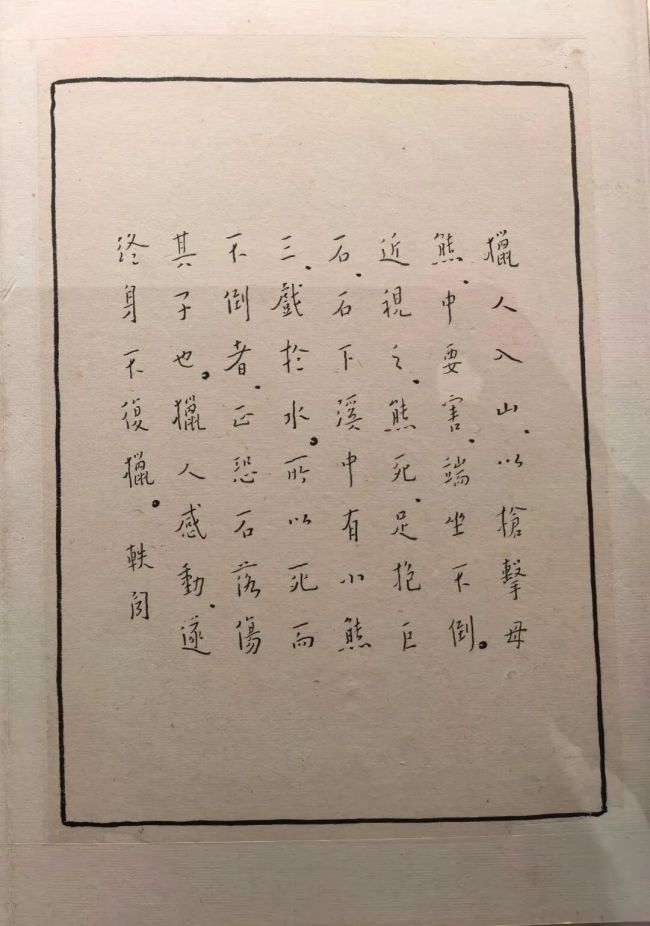 獵人入山、以槍擊母
熊、中要害、端坐不倒。
近視之、熊死、足抱巨
石、石下溪中有小熊
三、戲於水。所以死而
不倒者、正恐石落傷
其子也。獵人感動、遂
終身不復獵。軼聞